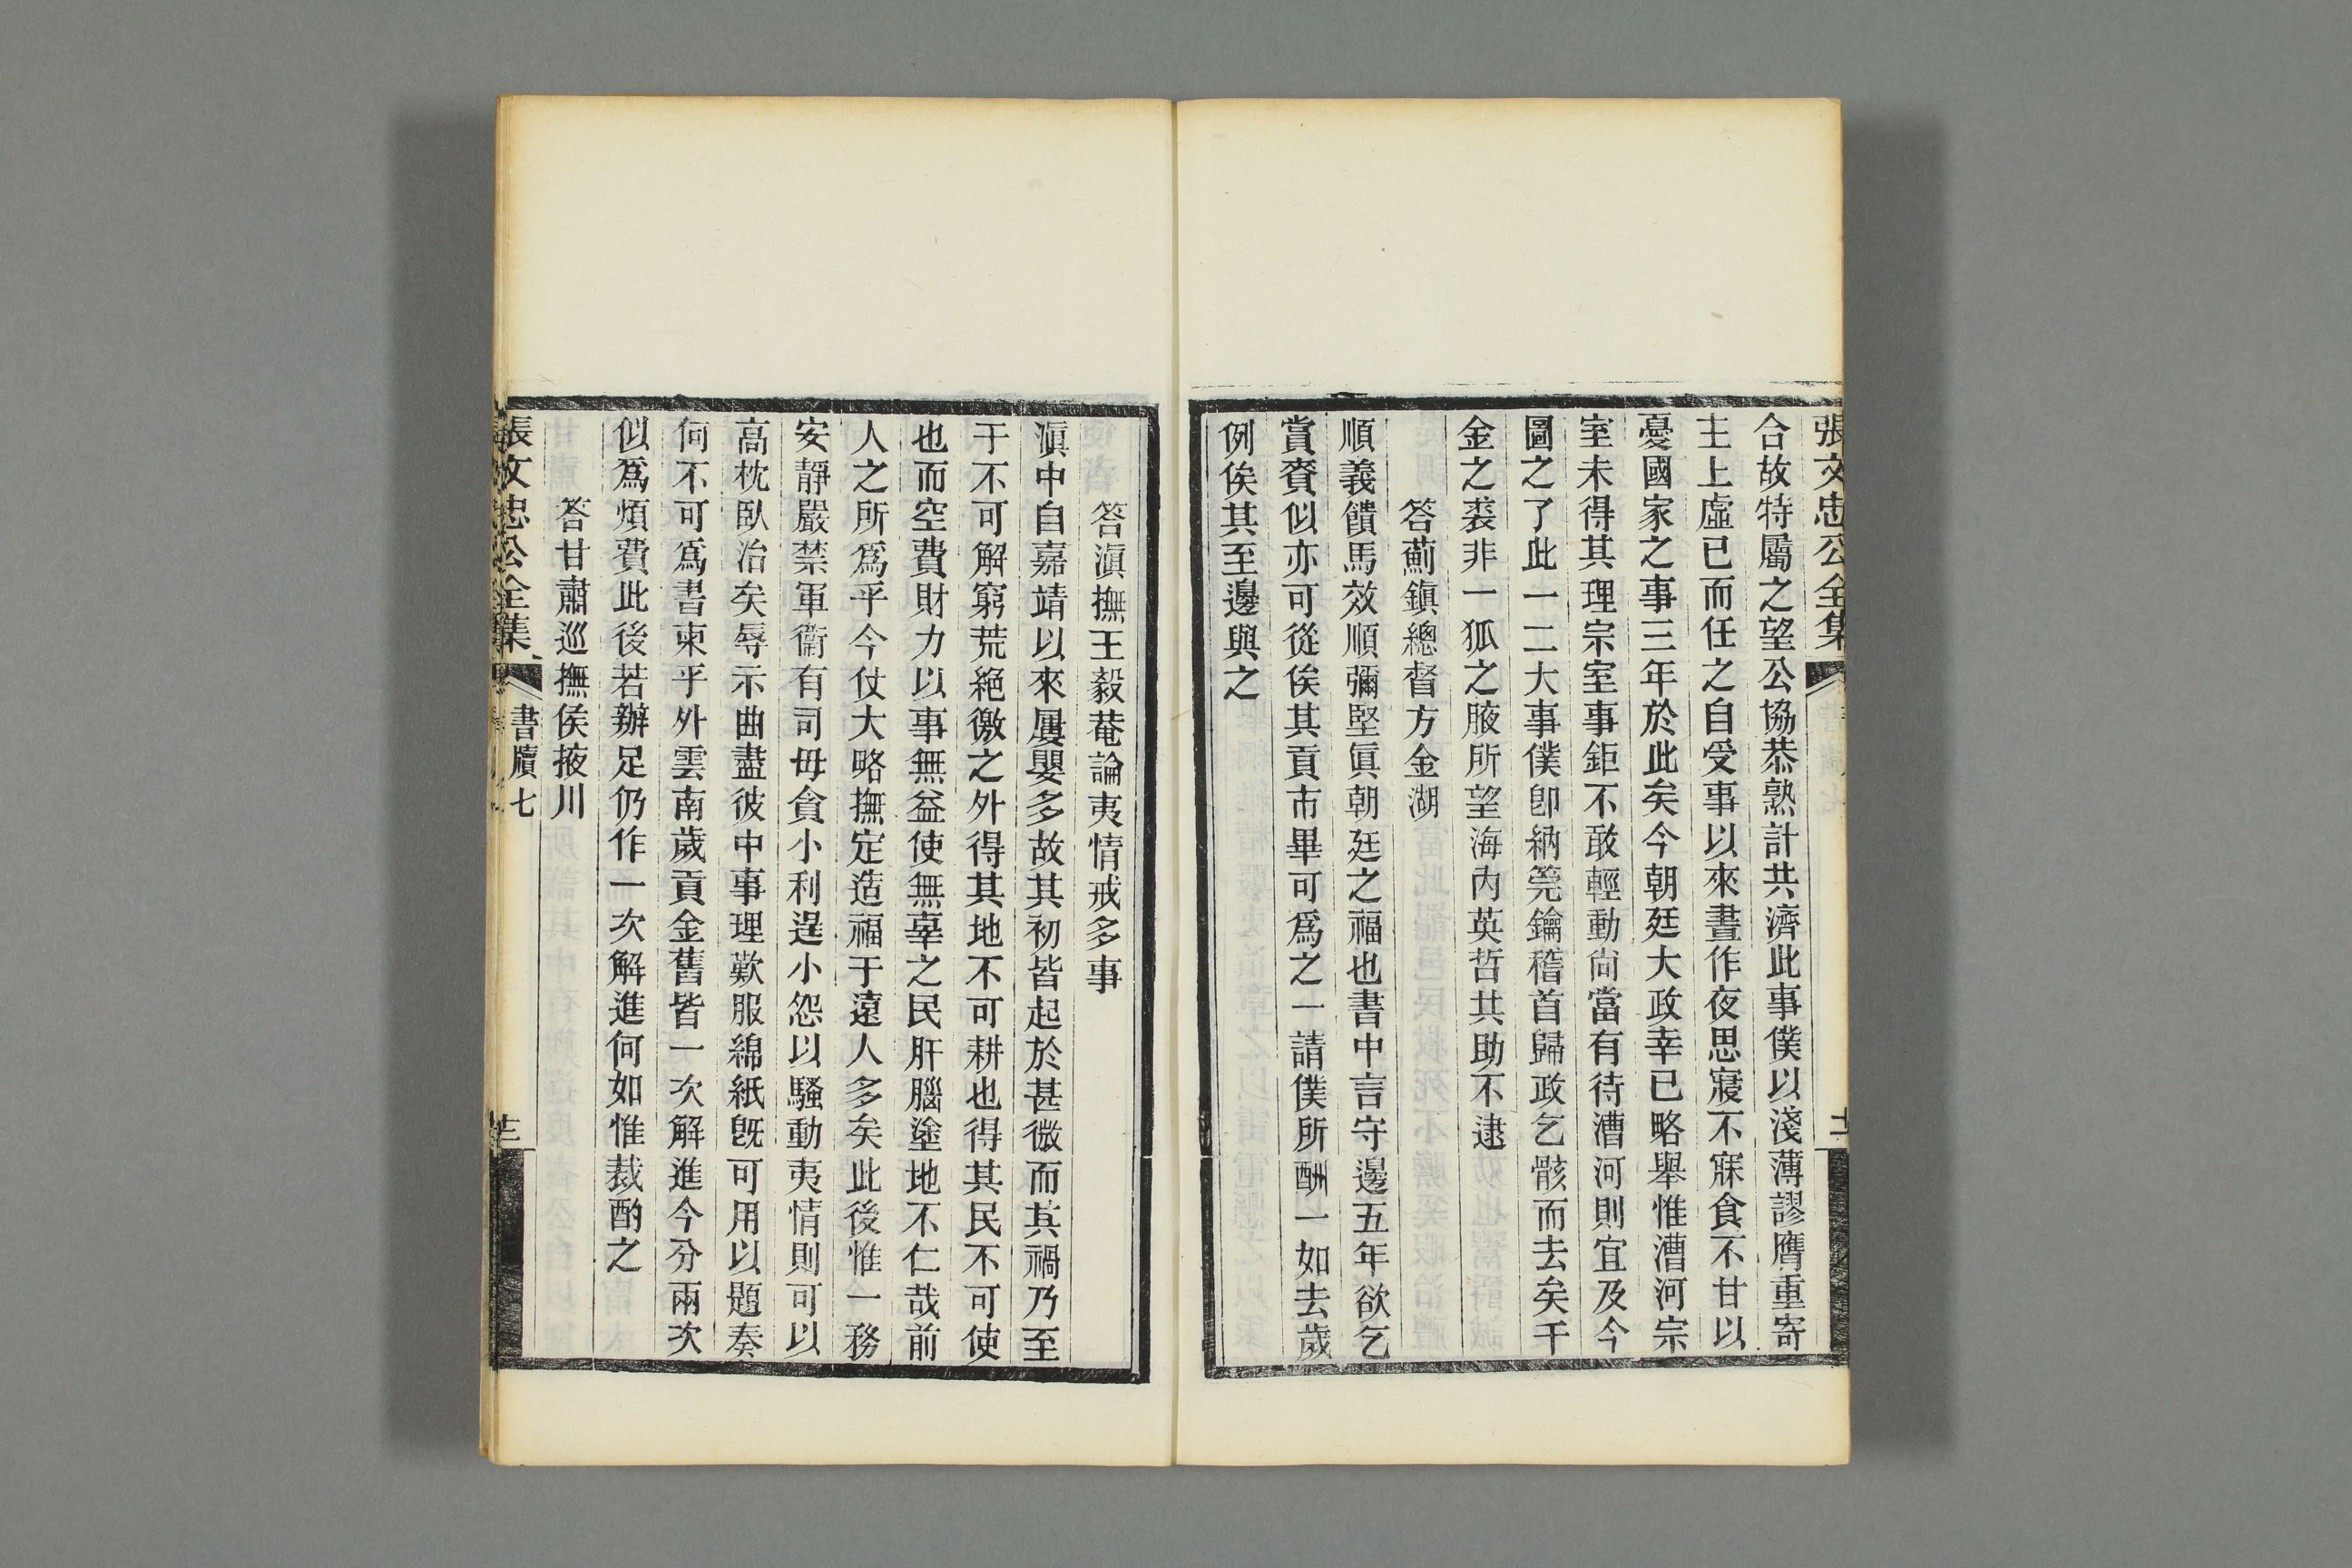 張文忠公全集
合故特屬之望公協恭熟計共濟此事僕以淺薄謬膺重寄
主上虛已而任之自受事以來晝作夜思寢不寐食不甘以
憂國家之事三年於此矣今朝廷大政幸已略舉惟漕河宗
室未得其理宗室事鉅不敢輕動尙當有待漕河則宜及今
圖之了此一二大事僕卽納筦鑰稽首歸政乞骸而去矣千
金之裘非一狐之腋所望海內英哲共助不逮
答薊鎭總督方金湖
順義饋馬效順彌堅眞朝廷之福也書中言守邊五年欲乞
賞賚似亦可從俟其貢市畢可爲之一請僕所酬一如去歲
例俟其至邊與之
答滇撫王毅菴論夷情戒多事
滇中自嘉靖以來屢嬰多故其初皆起於甚微而其禍乃至
于不可解窮荒絕徼之外得其地不可耕也得其民不可使
也而空費財力以事無益使無辜之民肝腦塗地不仁哉前
人之所爲乎今仗大略撫定造福于遠人多矣此後惟一務
安靜嚴禁軍衞有司毋貪小利逞小怨以騷動夷情則可以
高枕臥治矣辱示曲盡彼中事理歎服綿紙旣可用以題奏
何不可爲書柬乎外雲南歲貢金舊皆一次解進今分兩次
似爲煩費此後若辦足仍作一次解進何如惟裁酌之
答甘肅巡撫侯掖川
張文忠公全集 書牘七 十三